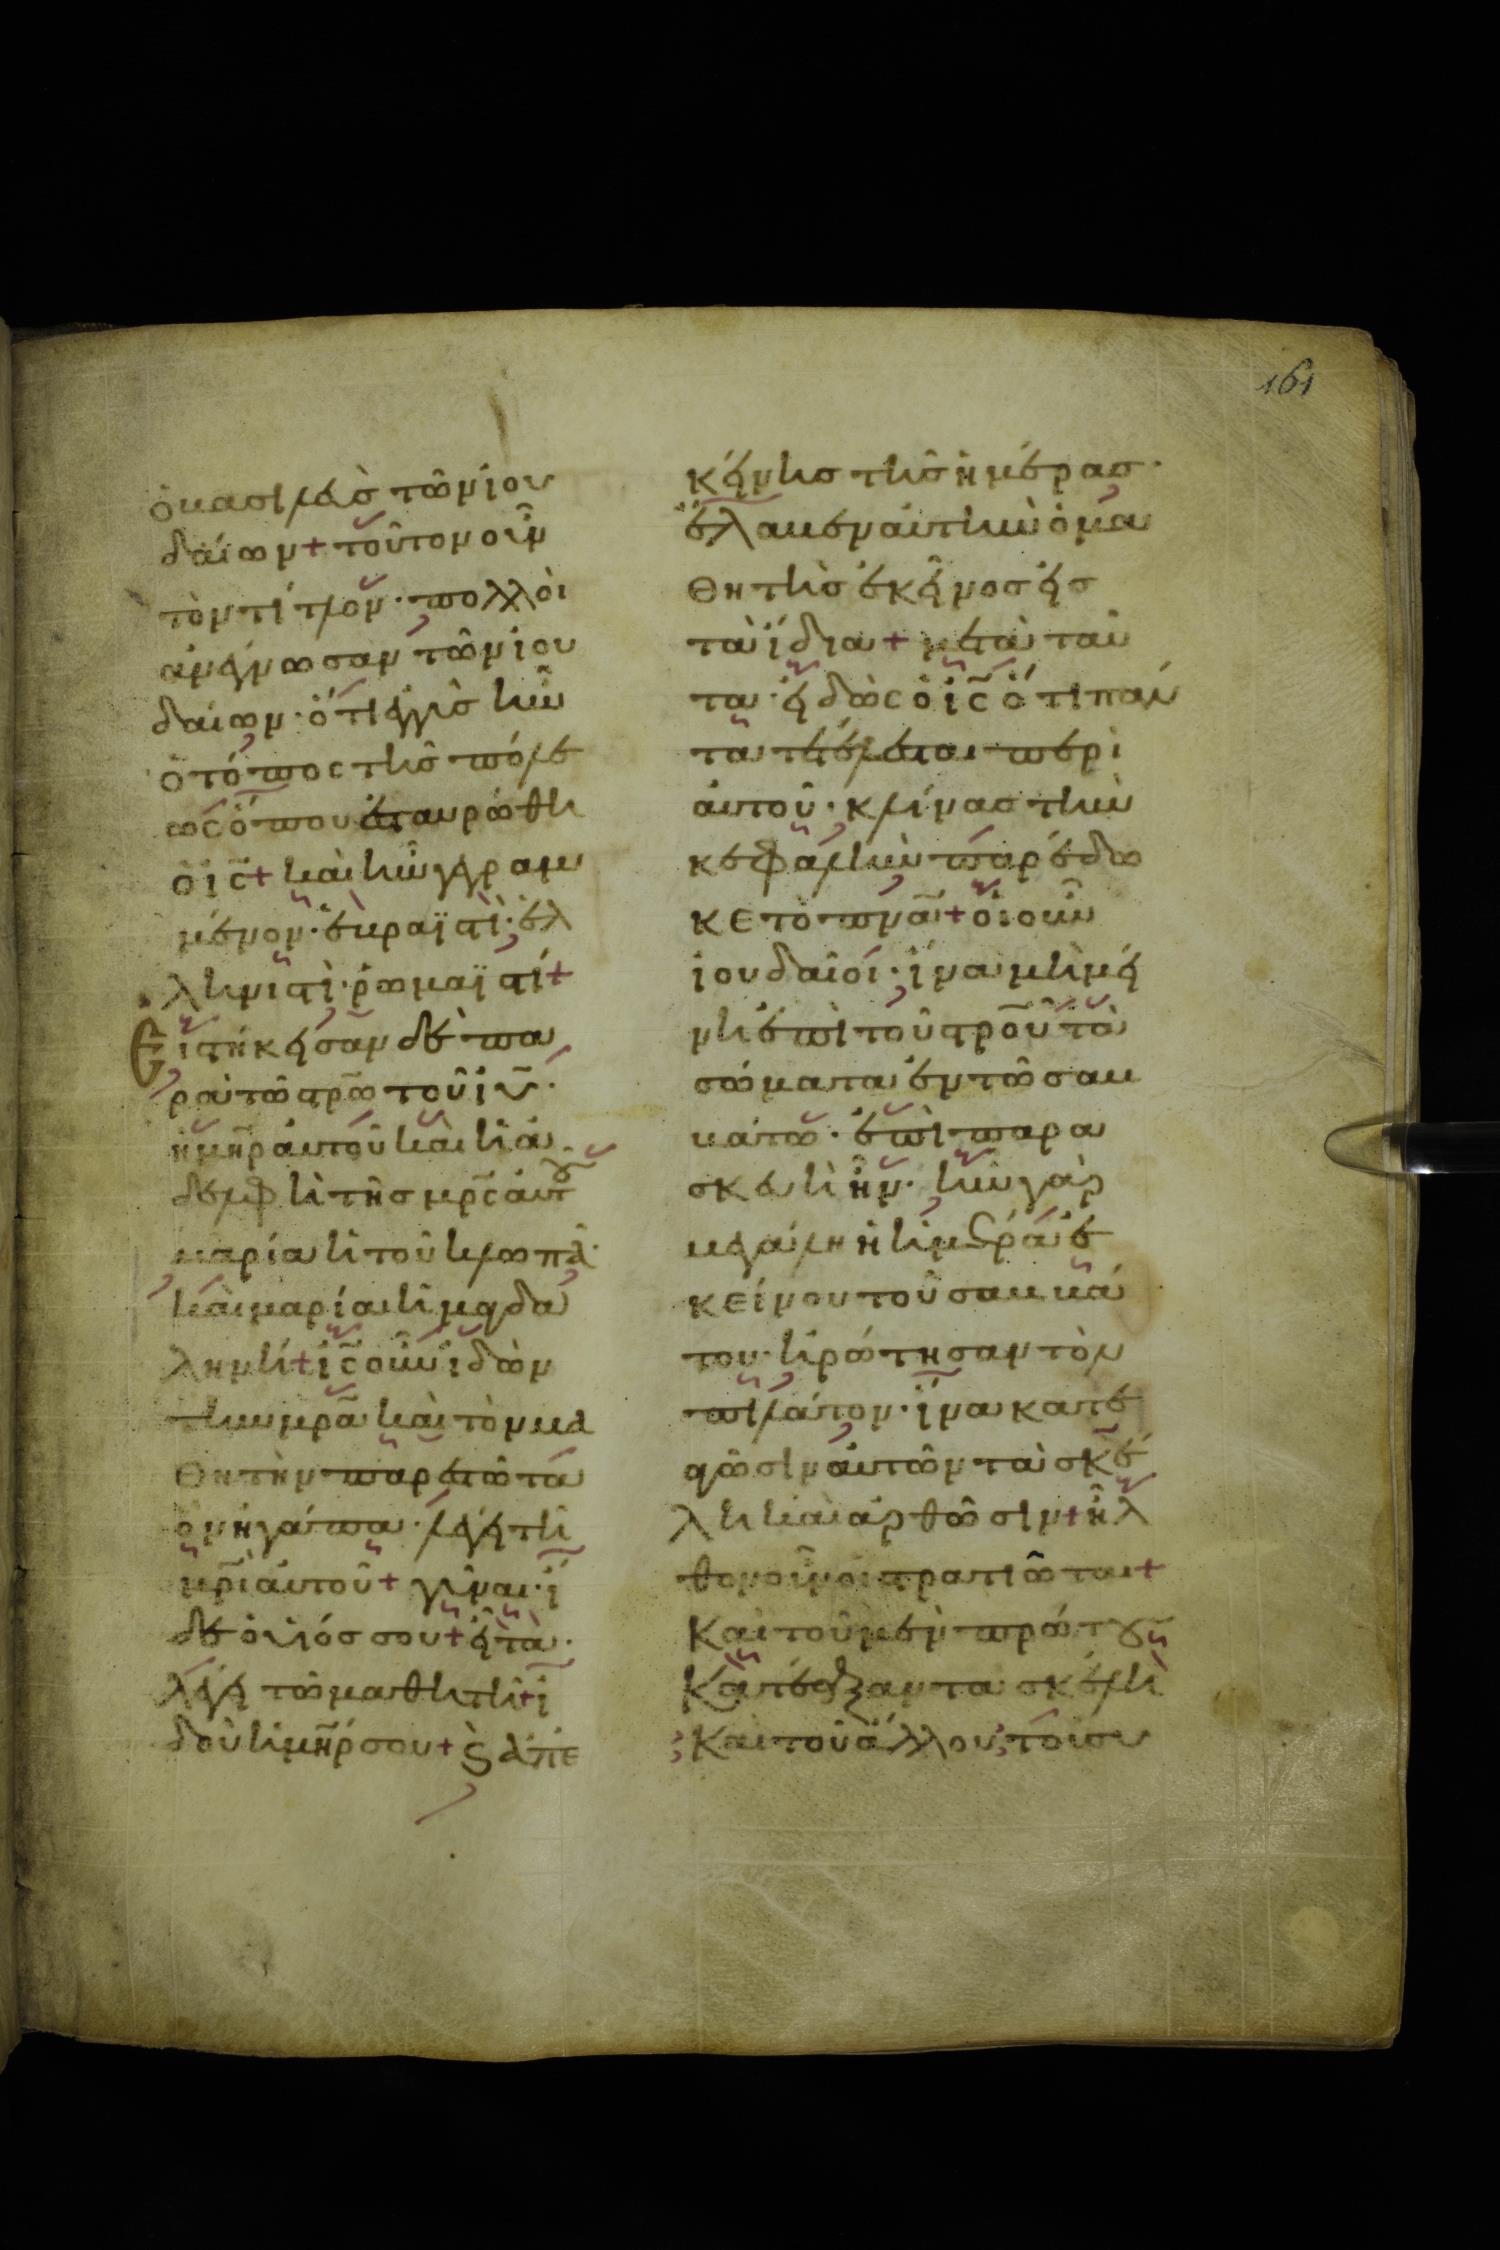 161
ὁ βασιλεὺς τῶν ἰου
δαίων + τοῦτον οὖν
τὸν τίτλον · πολλοὶ
ἀνέγνωσαν τῶν ἰου
δαίων · ὅτι ἐγγὺς ἦν
ὁ τόπος τῆς πόλε
ως ὅπου ἐσταυρώθη
ὁ ις + καὶ ἦν γεγραμ
μένον · ἑβραϊστὶ · ἑλ
ληνιστὶ · ῥωμαϊστί +
Εἱστήκεισαν δὲ πα
ρὰ τῶ στρω τοῦ ιυ ·
ἡ μηρ αὐτοῦ καὶ ἡ ἀ
δελφὴ τῆς μρς αὐτου
μαρία ἡ τοῦ κλωπᾶ ·
καὶ μαρία ἡ μαγδα
ληνή + ις οὖν ἰδὼν
τὴν μρα καὶ τὸν μα
θητὴν παρεστῶτα
ὃν ἠγάπα · λέγει τῆ
μρι αὐτοῦ + γύναι · ἴ
δε ὁ υἱός σου + εἶτα ·
λέγει τῶ μαθητῆ + ἰ
δοὺ ἡ μηρ σου + ϛ ἀπ ἐ
κείνης τῆς ἡμέρας ·
ἔλαβεν αὐτὴν ὁ μα
θητὴς ἐκεῖνος εἰς
τὰ ἴδια + μετὰ ταῦ
τα · εἰδὼς ὁ ις ὅτι πάν
τα τετέλεσται περὶ
αὐτοῦ · κλίνας τὴν
κεφαλὴν παρέδω
κε τὸ πνα + οἱ οὖν
ἰουδαῖοι · ἵνα μὴ μεί
νη ἐπὶ τοῦ στροῦ τὰ
σώματα ἐν τῶ σαβ
βάτω · ἐπὶ παρα
σκευὴ ἦν · ἦν γὰρ
μεγάλη ἡ ἡμέρα ἐ
κείνου τοῦ σαββά
του · ἠρώτησαν τὸν
πιλάτον · ἵνα κατε
αγῶσιν αὐτῶν τὰ σκέ
λη καὶ ἀρθῶσιν + ἦλ
θον οὖν οἱ στρατιῶται +
Καὶ τοῦ μὲν πρώτου
κατέαξαν τα σκέλη
Καὶ τοῦ ἄλλου τοῦ συ